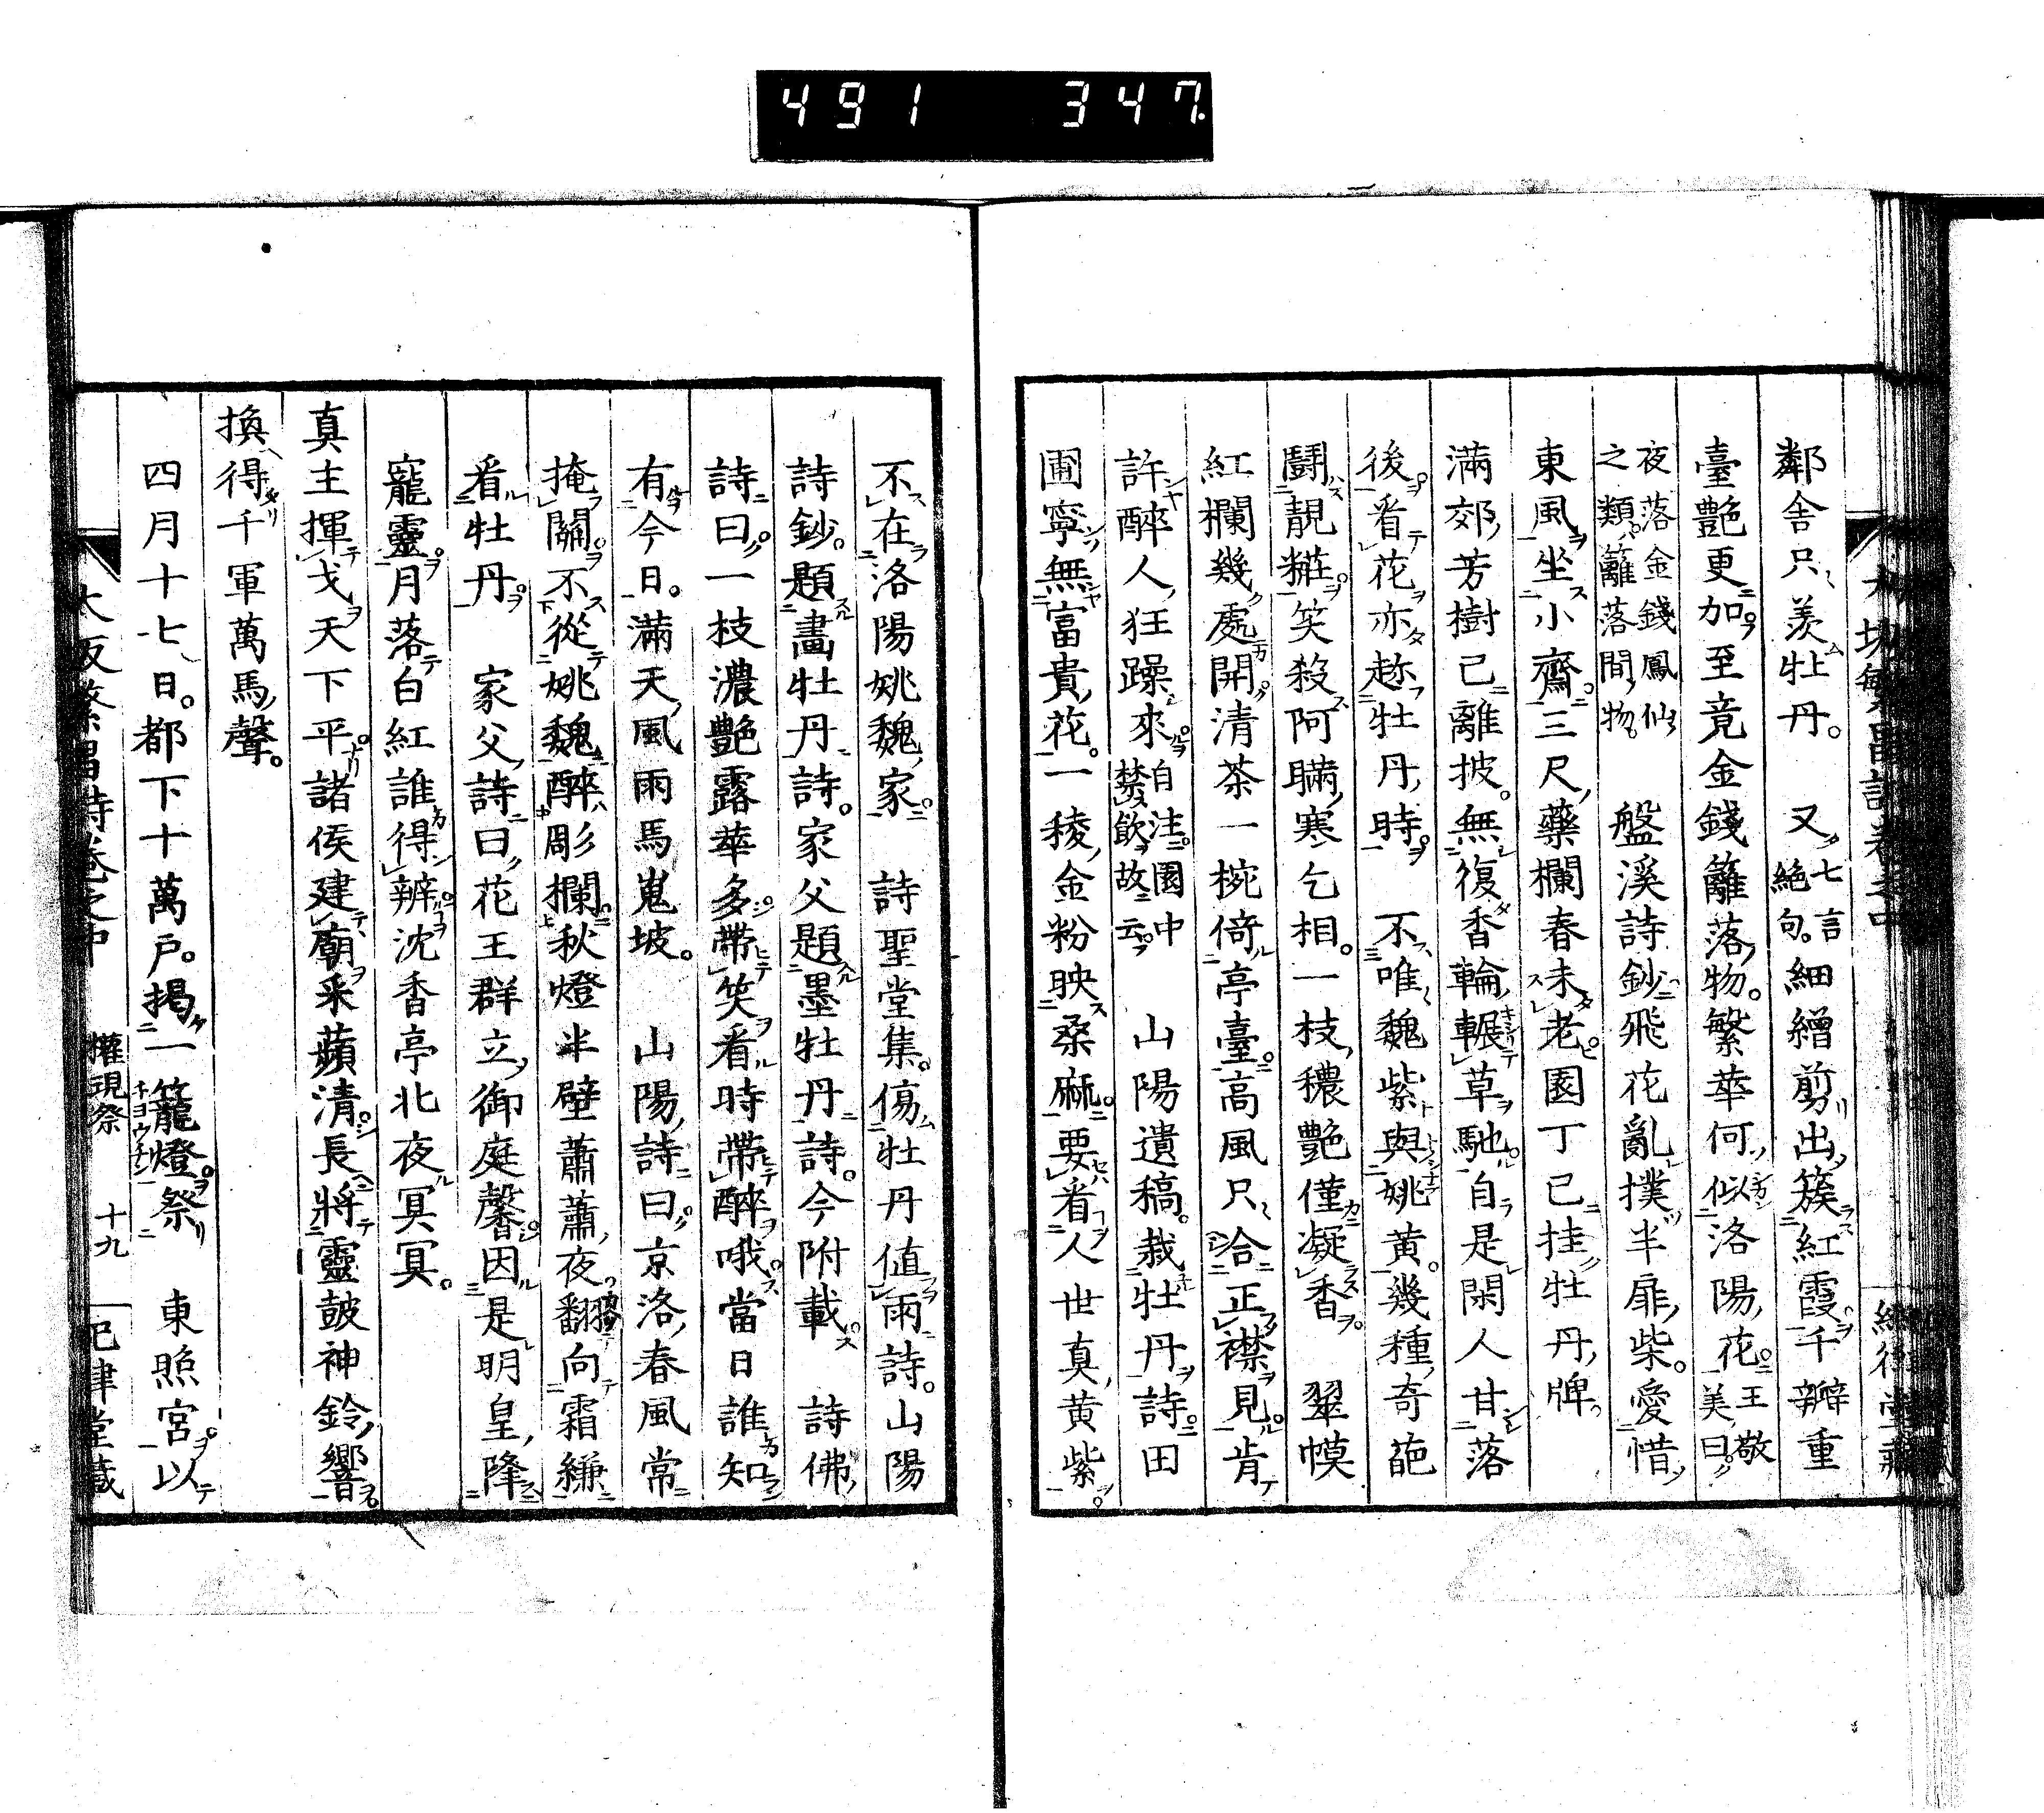 491 347.
鄰舍只羨牡丹。 又七言絶句。細繒剪出簇紅霞千瓣重
臺艶更加至竟金錢籬落物。繁華何似洛陽花王敬美曰
夜落金錢鳳仙之類籬落間物 盤溪詩鈔飛花亂撲半扉柴。愛惜
東風坐小齋三尺藥欄春未老園丁已挂牡丹牌
滿郊芳樹已離披。無復香輪輾草馳自是閑人甘落
後看花亦趂牡丹時 不唯魏紫與姚黄。幾種奇葩
鬪靚糚笑殺阿瞞寒乞相。一枝穠艶僅凝香 翠幙
紅欄幾處開清茶一椀倚亭臺高風只合正襟見肯
許醉人狂躁來自注園中禁飲故云 山陽遺稿。栽牡丹詩田
圃寧無富貴花。一稜金粉映桑麻要看人世真黄紫
不在洛陽姚魏家 詩聖堂集。傷牡丹値雨詩。山陽
詩鈔。題畫牡丹詩。家父題墨牡丹詩。今附載 詩佛
詩曰一枝濃艶露華多帶笑看時帶醉哦當日誰知
有今日。滿天風雨馬嵬坡。 山陽詩曰京洛春風常
掩關不從姚魏醉彫欄秋燈半壁蕭蕭夜翻向霜縑
看牡丹 家父詩曰花王群立御庭馨因是明皇降
寵靈月落白紅誰得辨沈香亭北夜冥冥。
真主揮戈天下平諸侯建廟采蘋清長將靈鼓神鈴響
換得千軍萬馬聲。
四月十七日。都下十萬戸。揭一籠燈祭 東照宮以
權現祭 十九